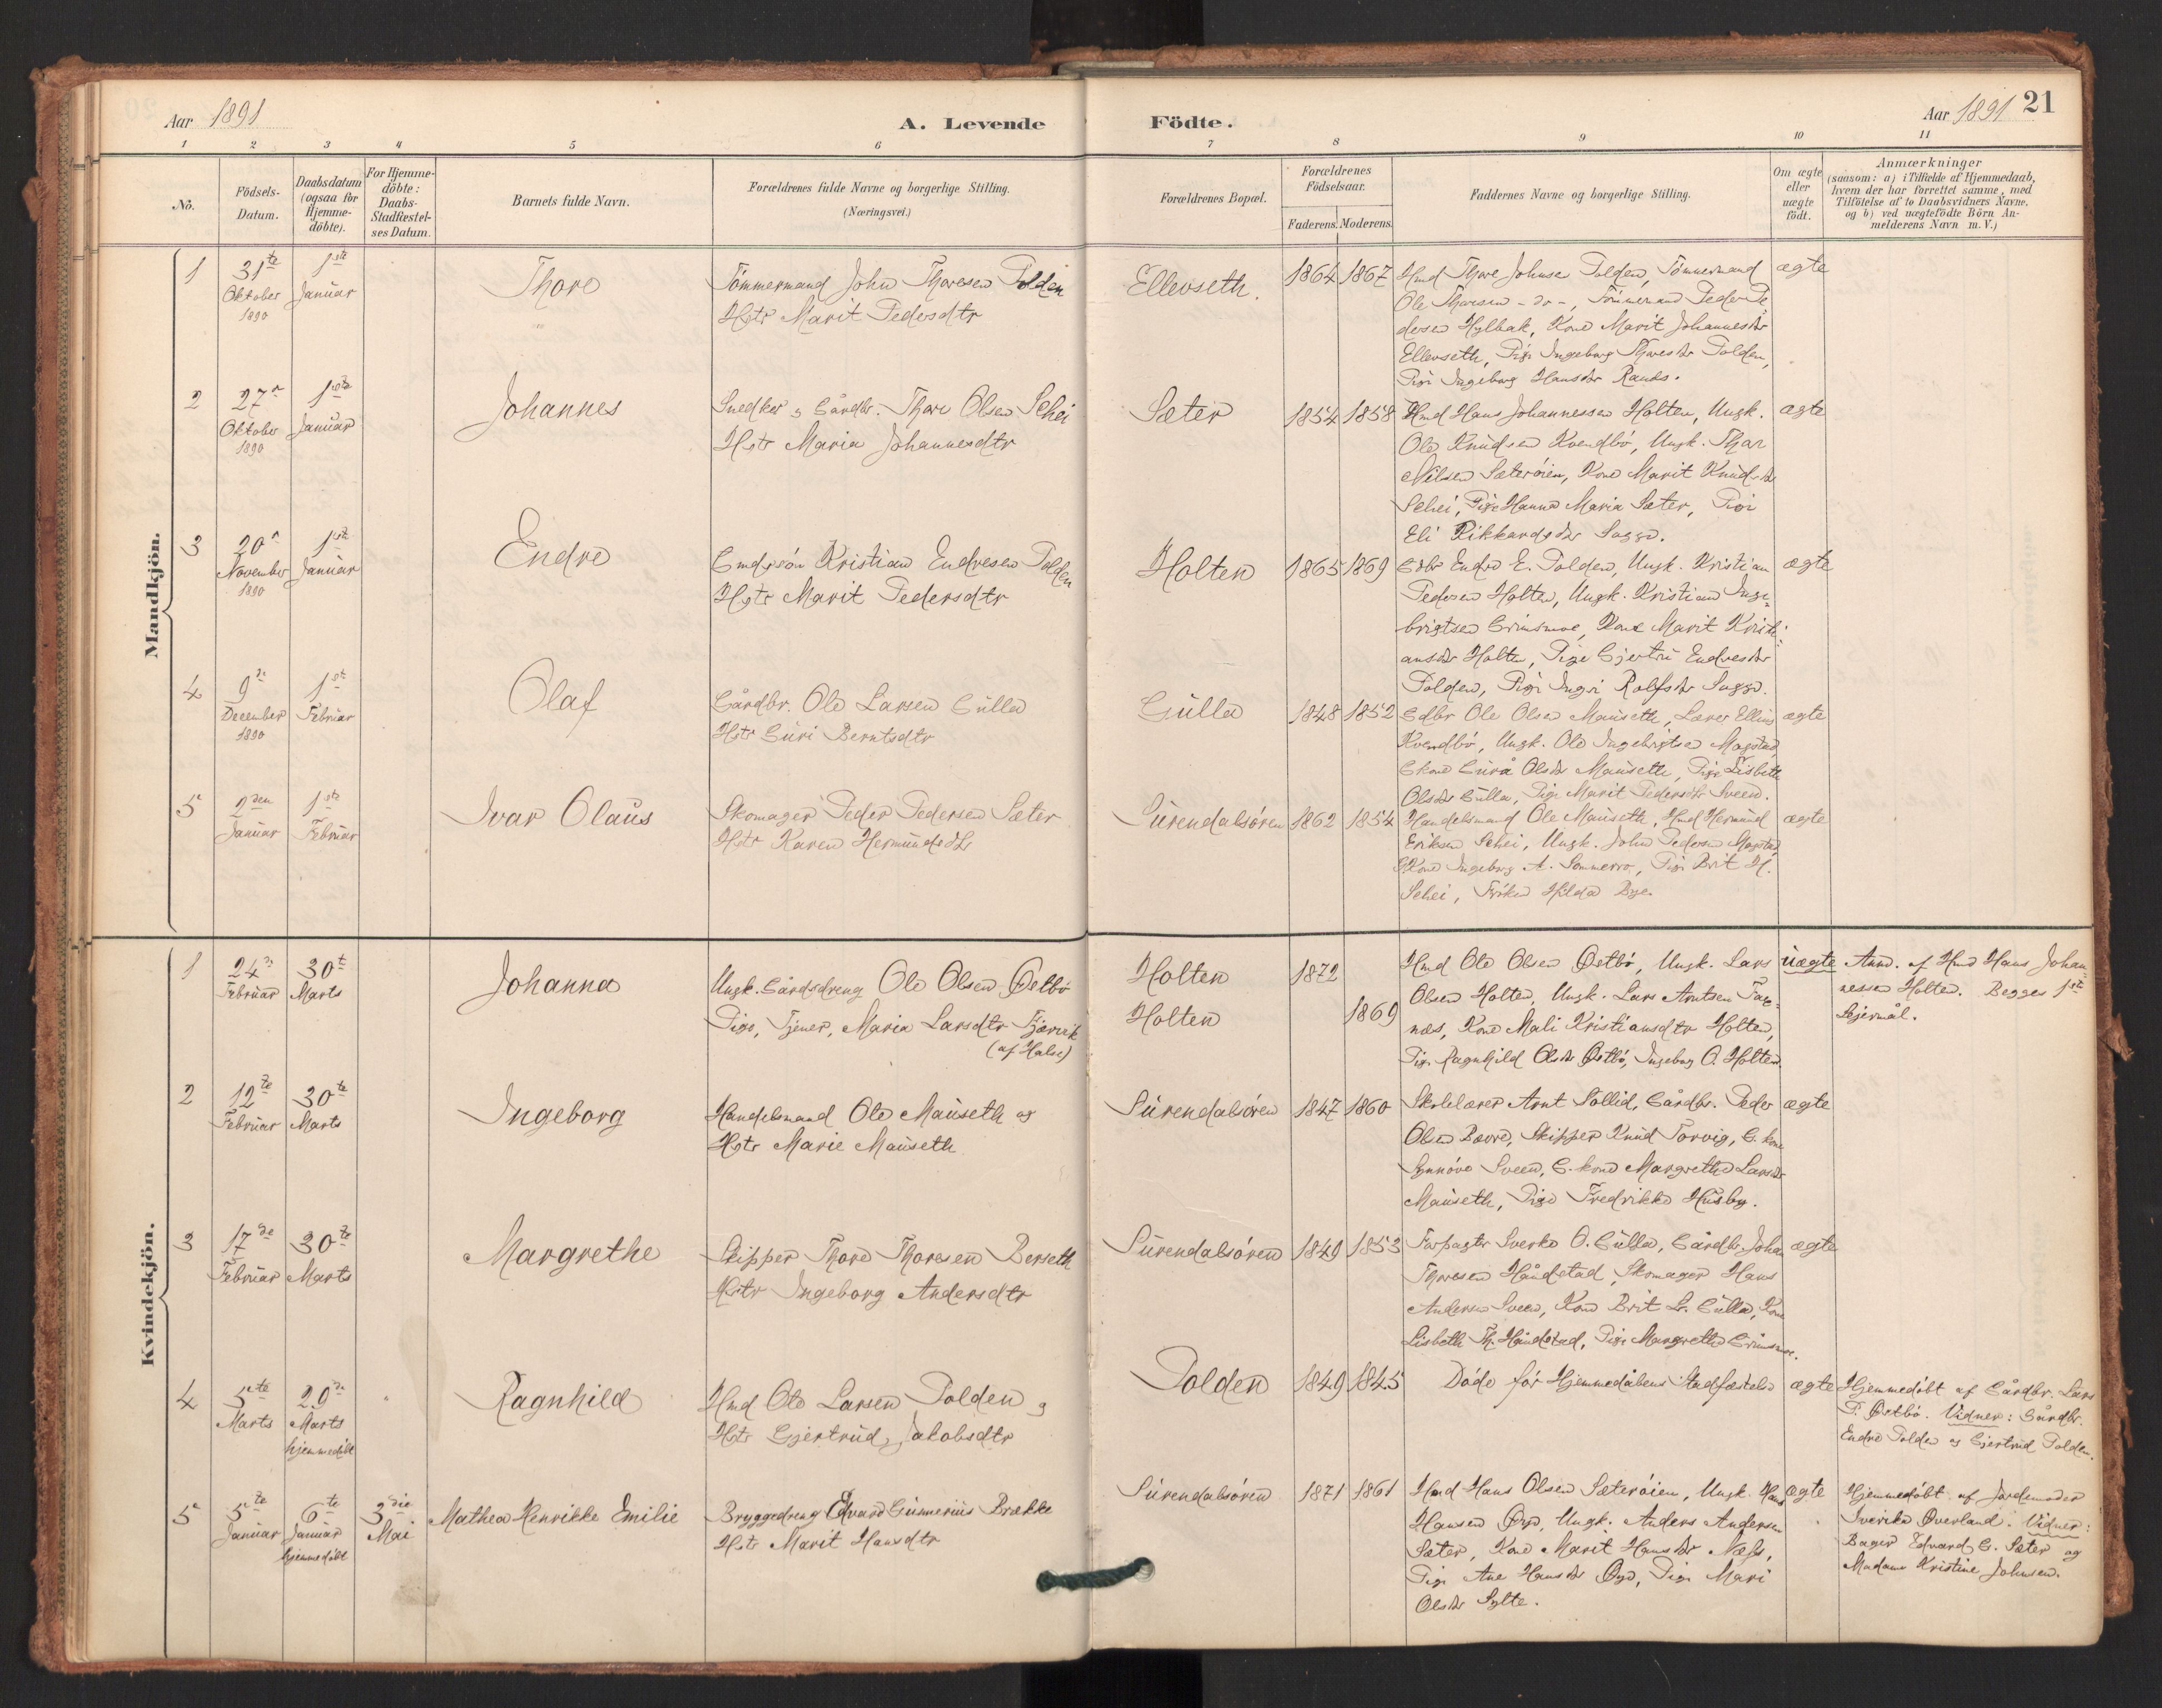 Aar 1891
A. Levende Födte.
Aar 1891 21
1 2 3 4 5 6 7 8 9 10 11
No.
Födsels-Datum.
Daabsdatum (ogsaa for Hjemme-döbte).
For Hjemme-döbte: Daabs-Stadfæstel-ses Datum.
Barnets fulde Navn.
Forældrenes fulde Navne og borgerlige Stilling.
(Næringsvei.)
Forældrenes Bopæl.
Forældrenes Födselsaar.
Faderens. Moderens.
Faddernes Navne og borgerlige Stilling.
Om ægte eller uægte födt.
Anmærkninger
(saasom: a) i Tilfælde af Hjemmedaab,
hvem der har forrettet samme, med
Tilföielse af to Daabsvidners Navne.
og b) ved uægtefödte Börn An-
melderens Navn m. V.)
Mandkjön.
1 31te Oktober 1890 1ste Januar
Thore
Tömmermand John Thoresen Polden
Hstr Marit Pedersdtr
Ellevseth.
1864 1867
Hmd Thore Johnsen Polden, Tömmermand
Ole Thoresen - do -, Tömmermand Peder Pe
dersen Hylbak, Kone Marit Johannesdtr
Ellevseth, Pige Ingeborg Thoresdtr Polden,
Pige Ingeborg Hansdtr Rands.
ægte
2 27de Oktober 1890 1ste Januar
Johannes
Snedker og Gårdbr. Thore Olsen Schei
Hstr Maria Johannesdtr
Sæter
1854 1858
Hmd Hans Johannessen Holten, Ungk.
Ole Knudsen Kvendbö, Ungk. Thor
Nilsen Sæteröien, Kone Marit Knudsdtr
Schei, Pige Hanna Maria Sæter, Pige
Eli Rikkardsdtr
ægte
3 20de November 1890 1ste Januar
Endre
Gmdssön Kristian Endresen Polden
Hstr Marit Pedersdtr
Holten
1865 1869
Gdbr Endre E. Polden, Ungk. Kristian
Pedersen Holten, Ungk. Kristian Inge-
brigtsen Grimsmoe, Kone Marit Kristi-
ansdtr Holten, Pige Gjertru Endresdtr
Polden, Pige Rolfsdtr
ægte
4 9de December 1890 1ste Februar
Olaf
Gårdbr. Ole Larsen Gulla
Hstr Guri Berntsdtr
Gulla
1848 1852
Gdbr Ole Olsen Mauseth, Lærer Elling
Kvendbö, Ungk. Ole Ingebrigtsen Mogstad
Gkone Olsdtr Mauseth, Pige Lisbeth
Olsdtr Gulla, Pige Marit Pedersdtr Sveen.
ægte
5 2den Januar 1ste Februar
Ivar Olaus
Skomager Peder Pedersen Sæter
Hstr Karen Hermundsdtr
Surendalsören
1862 1854
Handelsmand Ole Mauseth, Hmd Hermund
Eriksen Schei, Ungk. John Pedersen Mogstad,
Kone Ingeborg A. Sommerro, Pige Brit H.
Schei, Fröken Hilda Bye.
ægte
Kvindekjön.
1 24de Februar 30te Marts
Johanna
Ungk. Gårdsdreng Ole Olsen Östbö
Pige, Tjener, Maria Larsdtr Fjærvik
(af Halse)
Holten
Holten
1872
1869
Hmd Ole Olsen Östbö, Ungk. Lars
Olsen Holten, Ungk. Lars Arntsen Tax-
næs, Kone Mali Kristiansdtr Holten,
Pige Ragnhild Olsdtr Östbö, Ingeborg O. Holten.
uægte
Anm. af Hmd Hans Johan-
nessen Holten. Begges 1ste
Leiermål.
2 12te Februar 30te Marts
Ingeborg
Handelsmand Ole Mauseth og
Hstr Marie Mauseth
Surendalsören
1847 1860
Skolelærer Arnt Sollid, Gårdbr. Peder
Olsen Bævre, Skipper Knud Torvig, G.kone
Synnöve Sveen, G.kone Margrethe Larsdtr
Mauseth, Pige Fredrikke Husby.
ægte
3 17de Februar 30te Marts
Margrethe
Skipper Thore Thoresen Berseth
Hstr Ingeborg Andersdtr
Surendalsören
1849 1853
Forpagter Sverke O. Gulla, Gårdbr. Johan
Thoresen Håndstad, Skomager Hans
Andersen Sveen, Kone Brit L. Gulla, Kone
Lisbeth Th. Håndstad, Pige Margrethe Grimsmoe.
ægte
4 5te Marts 29de Marts hjemmedöbt
Ragnhild
Hmd Ole Larsen Polden og
Hstr Gjertrud Jakobsdtr
Polden
1849 1845
Döde för Hjemmedåbens Stadfæstelse
ægte
Hjemmedöbt af Gårdbr. Lars
P. Östbö. Vidner: Gårdbr.
Endre Polden og Gjertrud Polden.
5 5te Januar 6te Januar hjemmedöbt 3die Mai
Mathea Henrikke Emilie
Bryggedreng Edvard Gunnerius Brække
Hstr Marit Hansdtr
Surendalsören
1871 1861
Hmd Hans Olsen Sæteröien, Ungk. Hans
Hansen Öye, Ungk. Anders Andersen
Sæter, Kone Marit Hansdtr Næss,
Pige Ane Hansdtr Öye, Pige Mari
Olsdtr Sylte.
ægte
Hjemmedöbt af Jordemoder
Sverika Överland. Vidner:
Bager Edvard G. Sæter og
Madame Kristine Johnsen.